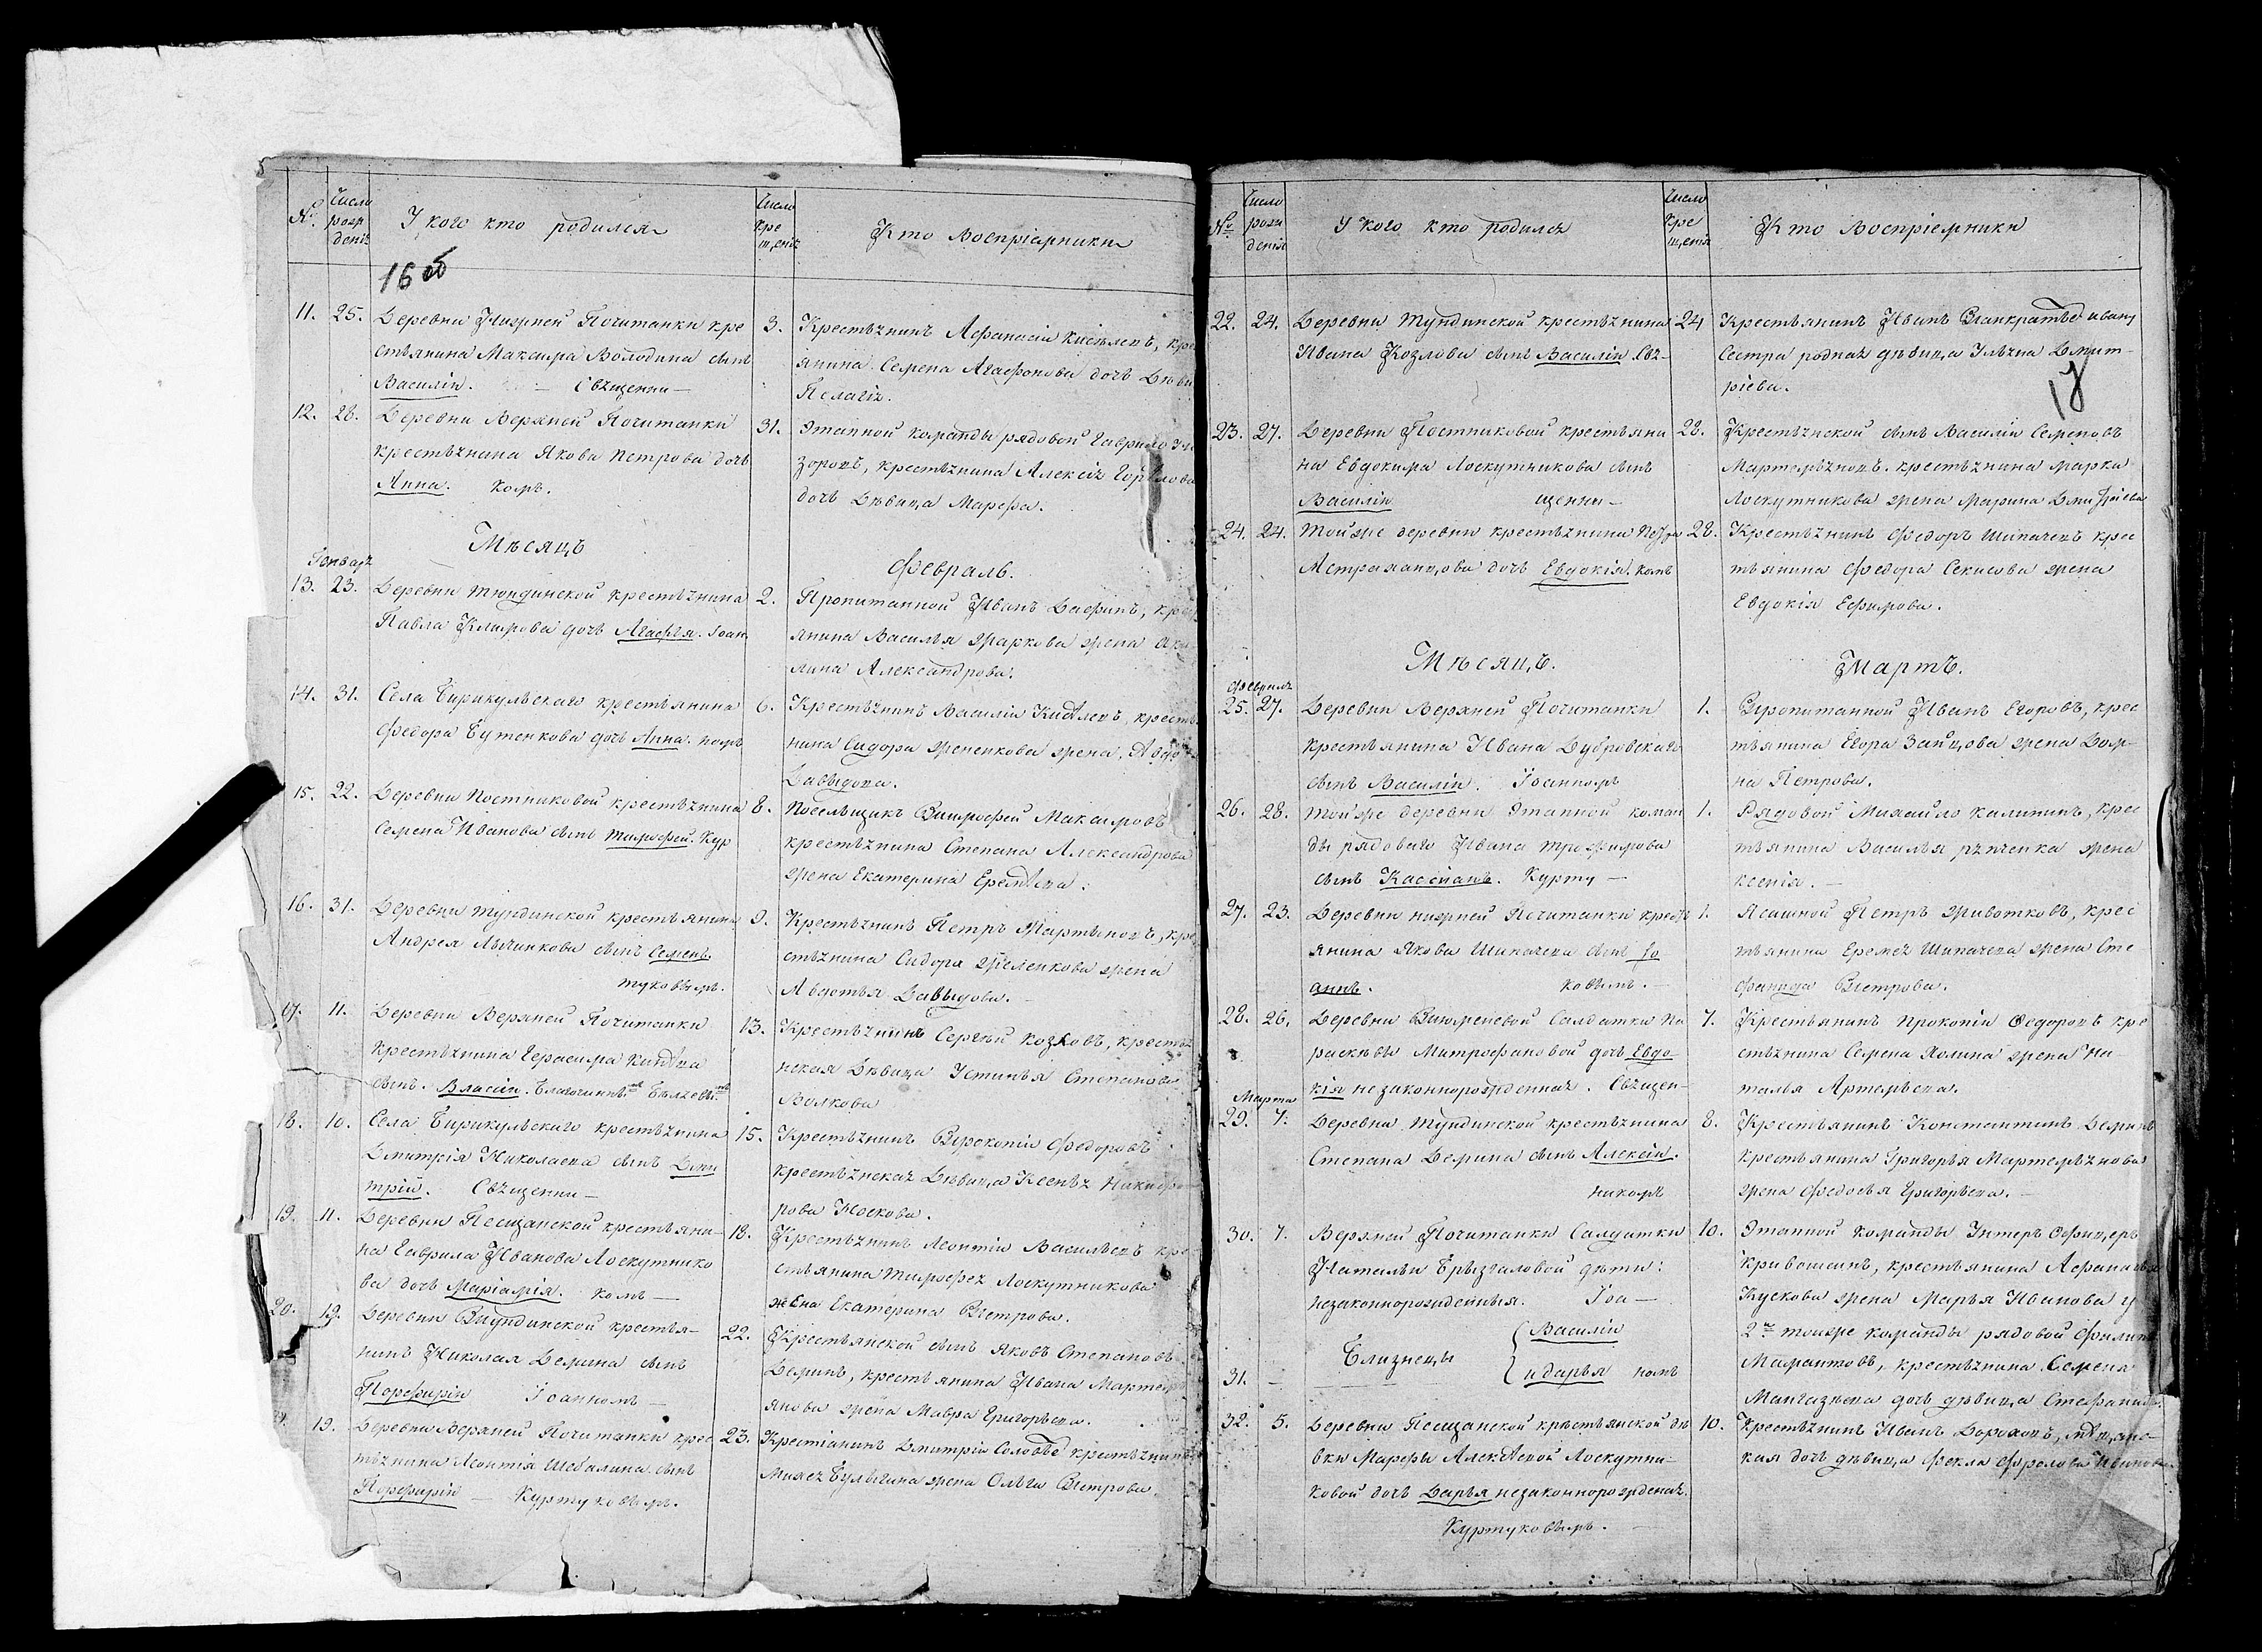 № Число рожденія У кого кто родился Число крещенія Кто Воспріемники
16 об
11. 25. Деревни Нижней Почитанки кре
стьянина Максима Володина сынъ
Василій. — Священни —
3. Крестьянинъ Афанасій Киселевъ, кре
янина Семена Агафонова дочь Дѣви
Пелагія.
12. 28. Деревни Верхней Почитанки
крестьянина Якова Петрова дочь
Анна. комъ.
31. Этапной команды рядовой Гаврило
зоровъ, крестьянина Алексія
дочь Дѣвица Марефа.
Мѣсяцъ Февраль.
Генваря
13. 23. Деревни Тюндинской крестьянина
Павла Климова дочь Агафія. Іоан
2. Пропитанной Иванъ, кре
янина Василья Маркова жена Аку
лина Александрова.
14. 31. Села Бирикульскаго крестьянина
Федора Бутенкова дочь Анна. номъ
6. Крестьянинъ Василій Киселевъ, кресть
нина Сидора жена, Авдо
Давыдова.
15. 22. Деревни Постниковой крестьянина
Семена Иванова сынъ Тимофей. Кур
8. Посельщикъ Тимофей Максимовъ
крестьянина Степана Александрова
жена Екатерина Еремѣева.
16. 31. Деревни Тундинской крестьянина
Андрея Лычникова сынъ Семенъ.
туковымъ.
9. Крестьянинъ Петръ Мартыновъ, кре
стьянина Сидора жена
Авдотья Давыдова. —
17. 11. Деревни Верхней Почитанки
крестьянина Герасима
сынъ. Власій. Благочиннымъ
13. Крестьянинъ Сергѣй Козловъ, кресть
нская Дѣвица Устинья Степанова
Волкова
18. 10. Села Бирикульскаго крестьянина
Дмитрія Николаева сынъ Дми
трій. Священни —
15. Крестьянинъ Прокопій Федоровъ
крестьянская Дѣвица Ксенья Никифо
рова Носкова.
19. 11. Деревни Песчанской крестьяни-
на Гаврила Иванова Лоскутнико
ва дочь Маріамія. комъ —
18. Крестьянинъ Леонтій Васильевъ кре
стьянина Тимофея Лоскутникова
жена Екатерина Петрова.
20. 19. Деревни Тундинской крестья-
нинъ Николая Демина сынъ
Порфирій Іоанномъ —
22. Крестьянской сынъ Яковъ Степановъ
Деминъ, крестьянина Ивана Мартемь
янова жена Мавра Григорьева.
19. Деревни Верхней Почитанки крес
тьянина Леонтія Шебалина сынъ
Порфирій — Куртуковымъ.
23. Крестіанинъ Дмитрій крестьянина
Михея Булыгина жена Ольга Петрова.
№ Число рожденія У кого кто родился Число крещенія Кто Воспріемники
17
22. 24. Деревни Тундинской крестьянина
Ивана Козлова сынъ Василій. Свя-
24 Крестьянинъ Иванъ
Сестра родная дѣвица Ульяна Дмит-
ріева.
23. 27. Деревни Постниковой крестьяни
на Евдокима Лоскутникова сынъ
Василій щенни —
28. Крестьянской сынъ Василій Семеновъ
Мартемьяновъ. крестьянина Марка
Лоскутникова жена Марина Дмитріева
24. 24. Той же деревни крестьянина Петра
Астраханцова дочь Евдокія. комъ
28. Крестьянинъ Федоръ Шипачевъ крес
тьянина Федора Секисова жена
Евдокія Ефимова.
Мѣсяцъ. Мартъ.
Февраля
25. 27. Деревни Верхней Почитанки
крестьянина Ивана Дубровскаго
сынъ Василій. Іоанномъ
1. Пропитанной Иванъ Егоровъ, крес
тьянина Егора Зайцова жена Дом-
на Петрова.
26. 28. Той же деревни Этапной коман
ды рядоваго Ивана Трофимова
сынъ Кассіанъ. Курту —
1. Рядовой Михайло Калининъ, крес
тьянина Василья Рѣпченка жена
Ксенія. —
27. 23. Деревни Нижней Почитанки крест
янина Якова Шипачева сынъ Іо
аннъ. ковымъ. —
1. Ясашной Петръ Животковъ, крес
тьянина Еремея Шипачева жена Сте
фанида Петрова.
28. 26. Деревни Тюменевой Салдатки Па
раскевы Митрофановой дочь Евдо
кія незаконнорожденная. Священ-
7. Крестьянинъ Прокопій Федоровъ кре
стьянина Семена Холина жена На
талья Артемьева.
Марта
29. 7. Деревни Тундинской крестьянина
Степана Демина сынъ Алексій.
никомъ
8. Крестьянинъ Константинъ Деминъ
крестьянина Григорья Мартемьянова
жена Федосья Григорьева. —
30. 7. Верхней Почитанки Салдатки
Натальи Брызгаловой дѣти:
незаконнорожденныя. Іоа —
Близнецы { Василій
31. — и Дарья номъ
10. Этапной команды Унтеръ Офицеръ
Кривошеинъ, крестьянина Афанасья
Кускова жена Марья Иванова у
2й тойже команды рядовой Филипъ
Мамонтовъ, крестьянина Семена
Мангазѣева дочь дѣвица Стефанида.
32. 5. Деревни Песчанской крестьянской дѣ
вки Марефы Алексѣевой Лоскутни-
ковой дочь Дарья незаконнорожденая.
Куртуковымъ. —
10. Крестьянинъ Иванъ Вороховъ,
кая дочь дѣвица Фекла Фролова Иванова.